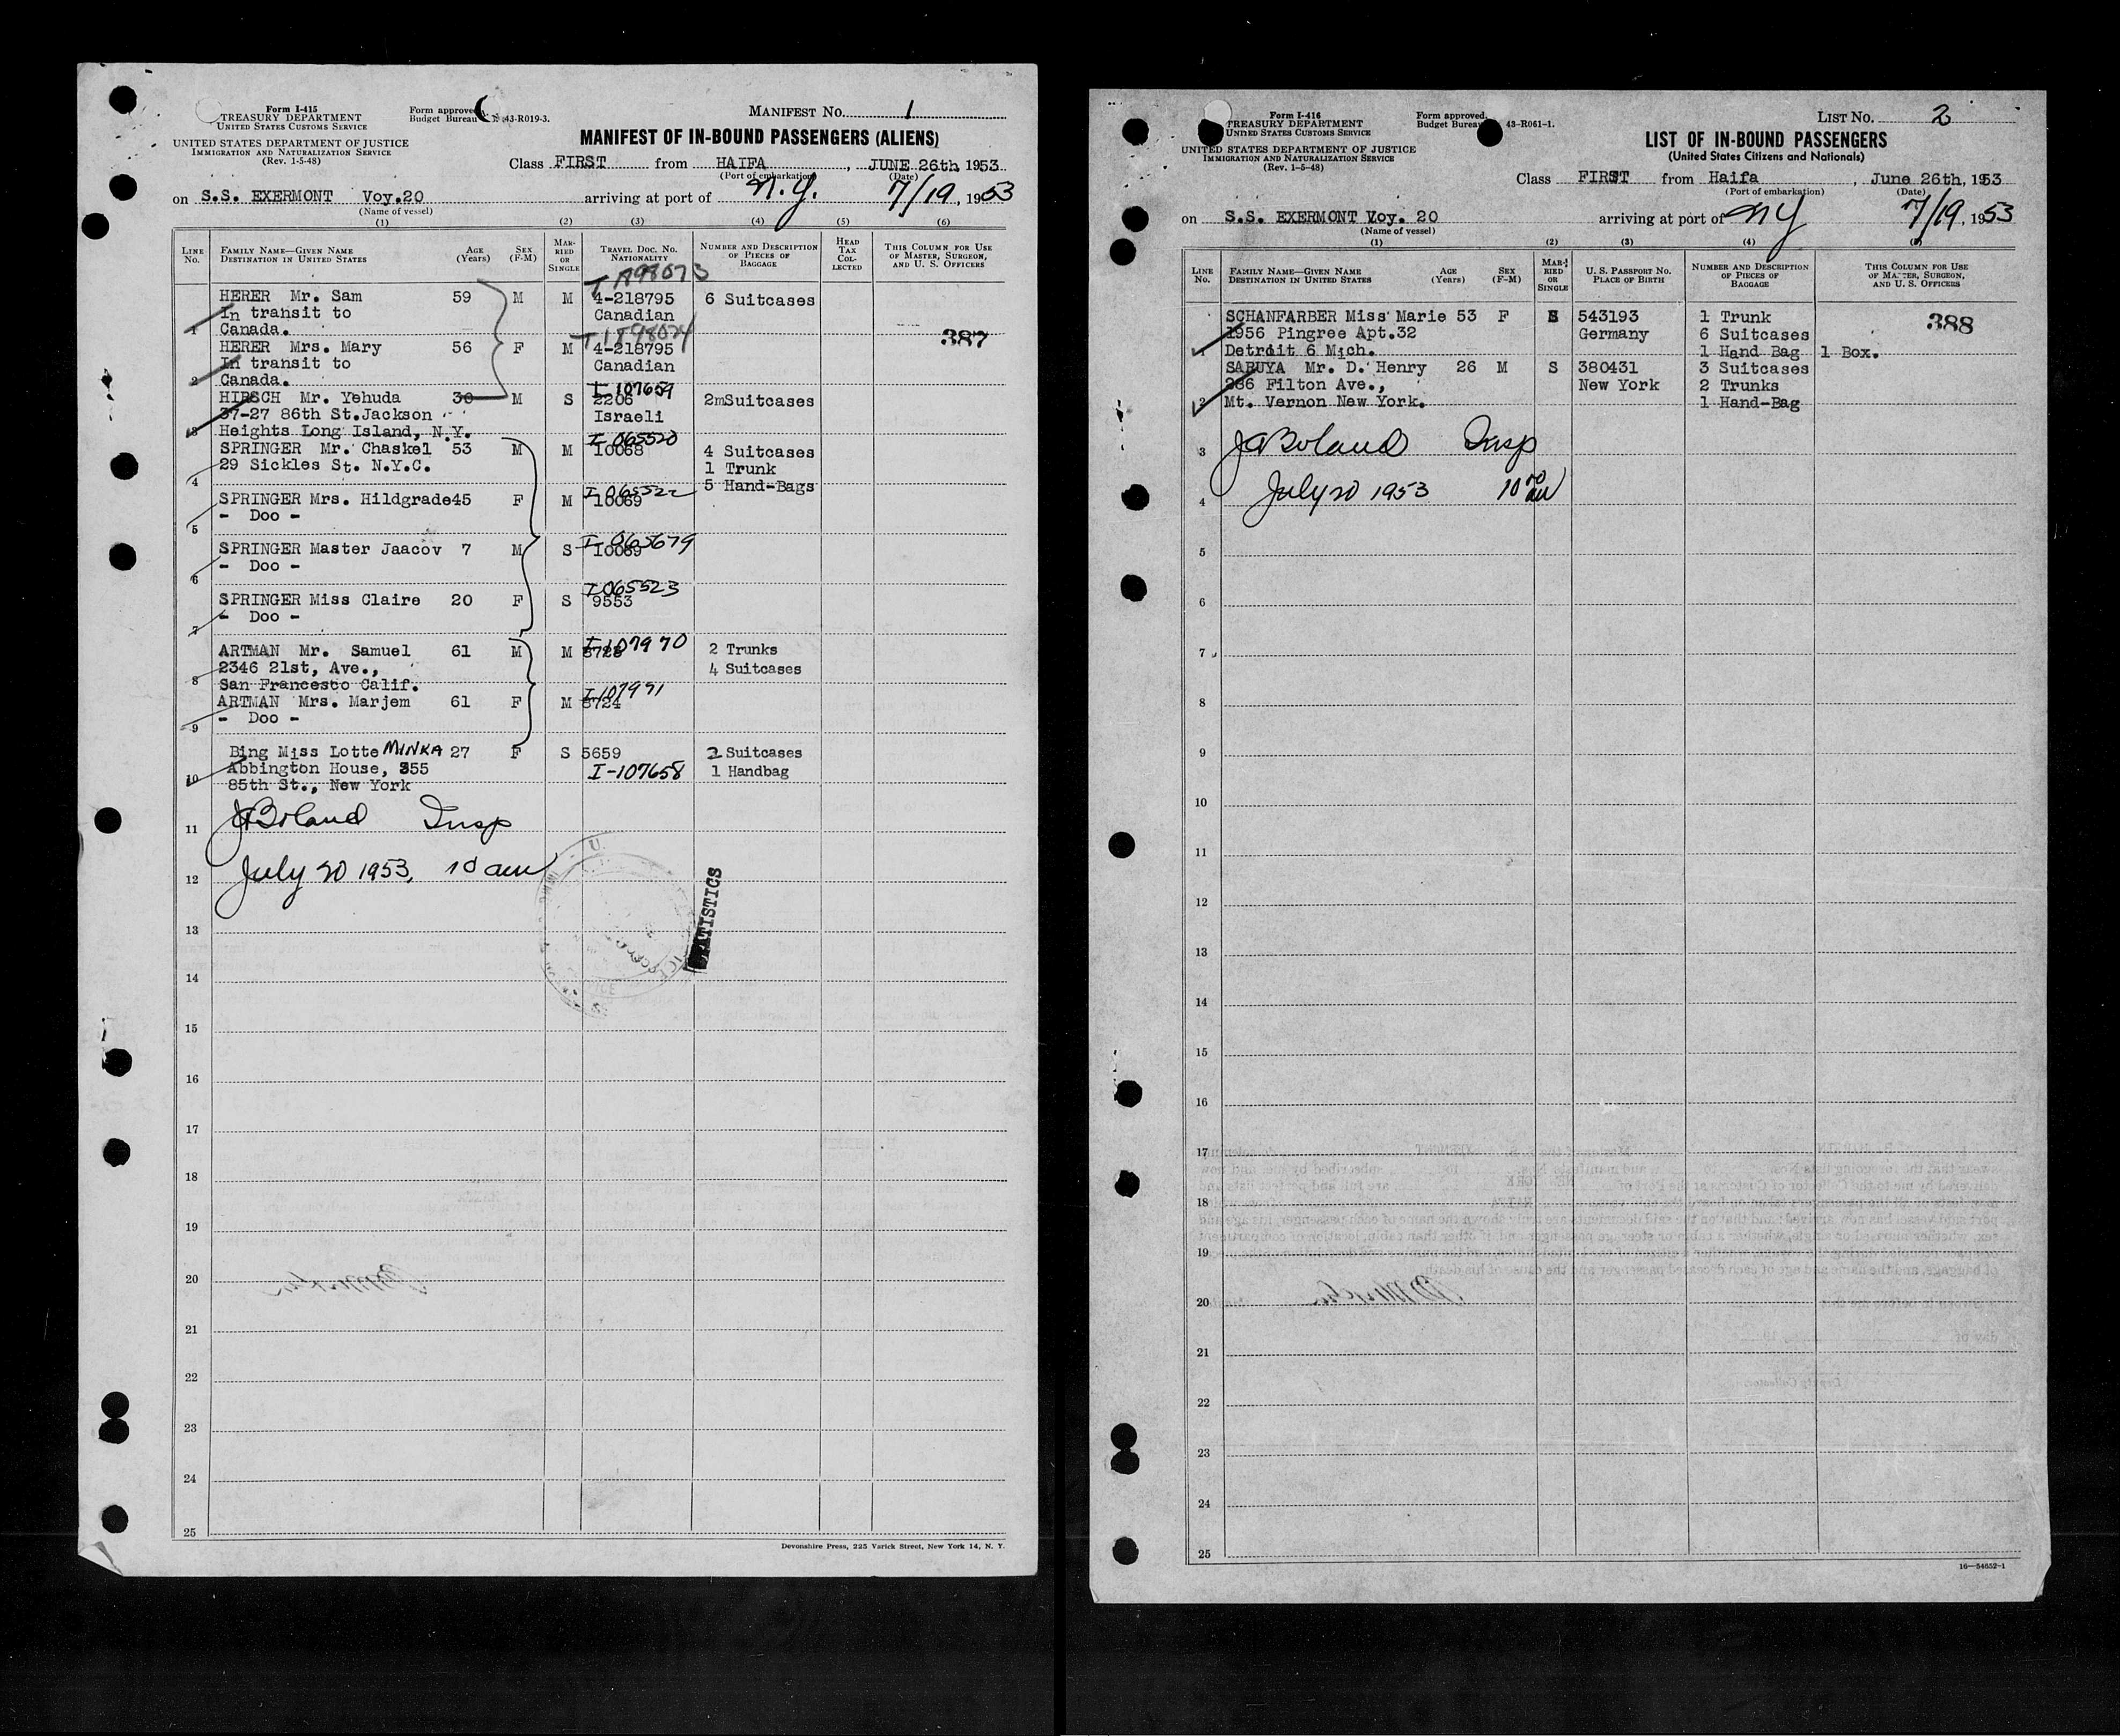 Form I-415
TREASURY DEPARTMENT
UNITED STATES CUSTOMS SERVICE
UNITED STATES DEPARTMENT OF JUSTICE
IMMIGRATION AND NATURALIZATION SERVICE
(Rev. 1-5-48)
Form approved
Budget Bureau 43-R019-3.
MANIFEST NO. 1
MANIFEST OF IN-BOUND PASSENGERS (ALIENS)
Class FIRST from HAIFA, JUNE 26th, 1953
(Port of embarkation) (Date)
on S.S. EXERMONT Voy.20 arriving at port of N.Y. 7/19, 1953
(Name of vessel)
(1) (2) (3) (4) (5) (6)
LINE No. FAMILY NAME—GIVEN NAME DESTINATION IN UNITED STATES AGE (Years) SEX (F-M) MARRIED OR SINGLE TRAVEL DOC. NO. NATIONALITY NUMBER AND DESCRIPTION OF PIECES OF BAGGAGE HEAD TAX COLLECTED THIS COLUMN FOR USE OF MASTER, SURGEON, AND U. S. OFFICERS
T 1898073
HERER Mr. Sam 59 M M 4-218795 6 Suitcases
In transit to Canadian
1 Canada. T 1898074 387
HERER Mrs. Mary 56 F M 4-218795
In transit to Canadian
2 Canada. I-107659
HIRSCH Mr. Yehuda 30 M S 2206 2mSuitcases
37-27 86th St.Jackson Israeli
3 Heights Long Island, N.Y. I 065520
SPRINGER Mr. Chaskel 53 M M 10068 4 Suitcases
29 Sickles St. N.Y.C. 1 Trunk
4 5 Hand-Bags
I 065522
SPRINGER Mrs. Hildgrade45 F M 10069
- Doo -
5
I-065679
SPRINGER Master Jaacov 7 M S 10069
- Doo -
6
I 065523
SPRINGER Miss Claire 20 F S 9553
- Doo -
7
I-107970
ARTMAN Mr. Samuel 61 M M 8723 2 Trunks
2346 21st, Ave., 4 Suitcases
8 San Francesto Calif. I-107971
ARTMAN Mrs. Marjem 61 F M 8724
- Doo -
9
Bing Miss Lotte MINKA 27 F S 5659 2 Suitcases
Abbington House, 355 I-107658 1 Handbag
10 85th St., New York
11 JBoland Insp
12 July 20 1953, 10 am
STATISTICS
13
14
15
16
17
18
19
20
21
22
23
24
25
Devonshire Press, 225 Varick Street, New York 14, N. Y.
Form I-416
TREASURY DEPARTMENT
UNITED STATES CUSTOMS SERVICE
UNITED STATES DEPARTMENT OF JUSTICE
IMMIGRATION AND NATURALIZATION SERVICE
(Rev. 1-5-48)
Form approved.
Budget Bureau 43-R061-1.
LIST NO. 2
LIST OF IN-BOUND PASSENGERS
(United States Citizens and Nationals)
Class FIRST from Haifa, June 26th, 1953
(Port of embarkation) (Date)
on S.S. EXERMONT Voy. 20 arriving at port of NY 7/19, 1953
(Name of vessel)
(1) (2) (3) (4) (5)
LINE No. FAMILY NAME—GIVEN NAME DESTINATION IN UNITED STATES AGE (Years) SEX (F-M) MARRIED OR SINGLE U. S. PASSPORT NO. PLACE OF BIRTH NUMBER AND DESCRIPTION OF PIECES OF BAGGAGE THIS COLUMN FOR USE OF MASTER, SURGEON, AND U. S. OFFICERS
SCHANFARBER Miss Marie 53 F S 543193 1 Trunk 388
1956 Pingree Apt.32 Germany 6 Suitcases
1 Detroit 6 Mich. 1 Hand Bag 1 Box.
SABUYA Mr. D. Henry 26 M S 380431 3 Suitcases
266 Filton Ave., New York 2 Trunks
2 Mt. Vernon New York. 1 Hand-Bag
3 JBoland Insp
4 July 20 1953 10 00 AM
5
6
7
8
9
10
11
12
13
14
15
16
17
18
19
20
21
22
23
24
25
16—54652-1